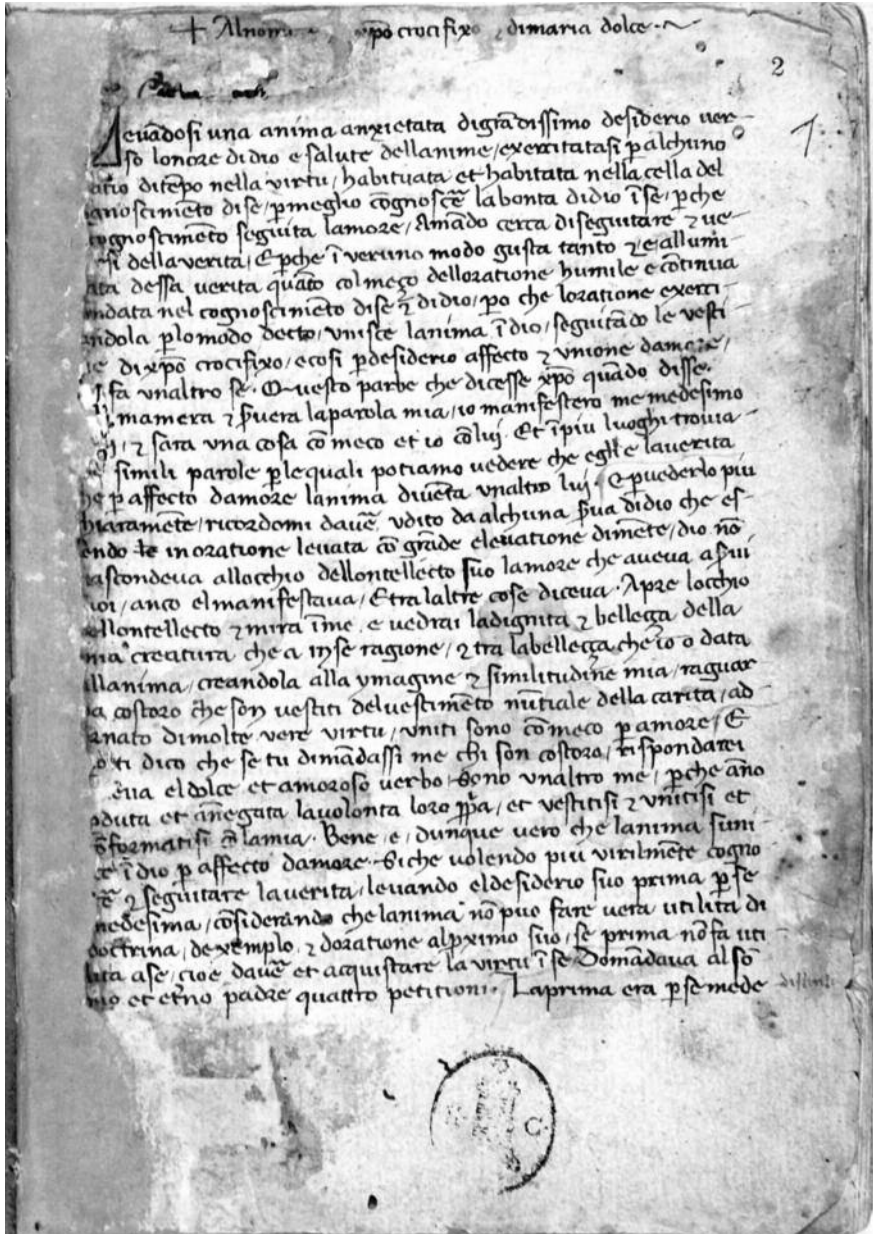 + Al nom xp̄o crocifixo dimaria dolce
2
1
Levādosi una anima anxietata digrādissimo desiderio ver
so lonore didio e salute dellanime / exercitatasi p̄ alchuno
ditēpo nella virtu / habituata et habitata nella cella del
gnoscimēto dise / p̄meglio cōgnosce᷑ la bonta didio ī se / p̄che
cognoscimēto seguita lamore / Amādo cerca diseguitare ⁊ ve
si della verita / E p̄che ī veruno modo gusta tanto ⁊ e allumi
ata dessa verita quāto col meço delloratione humile e cōtinua
ndata nel cognoscimēto dise ⁊ didio / po che loratione exerci
andola p̄ lo modo decto / unisce lanima ī dio / seguitādo le vesti
ie dixp̄o crocifixo / e cosi p̄ desiderio affecto ⁊ unione damore /
fa unaltro se. Questo parbe che dicesse xp̄o quādo disse.
mamera ⁊ s̄vera laparola mia / io manifestero me medesimo
⁊ sara una cosa cō meco et io cōlui. Et ī piu luoghi trovia
simili parole p̄ lequali potiamo vedere che egli e laverita
he p̄ affecto damore lanima divēta unaltro lui. E p̄ vederlo piu
hiaramēte / ricordomi dave᷑ udito da alchuna s̄va didio che es
endo in oratione levata cō grāde elevatione dimēte / dio nō
ascondeva allocchio dellontellecto suo lamore che aveva a s̄vi
oi / anco el manifestava / E tra laltre cose diceva. Apre locchio
ellontellecto ⁊ mira ī me. e vedrai ladignita ⁊ belleça della
mia creatura che a in se ragione / ⁊ tra labelleçça che io o data
allanima / creandola alla ymagine ⁊ similitudine mia / raguar
a costoro che son vestiti del vestimēto nutiale della carita / ad
ornato dimolte vere virtu / uniti sono cō meco p̄ amore / E
o ti dico che se tu dimādassi me chi son costoro / rispondarei
ceva el dolce et amoroso verbo. Sono unaltro me / p̄che āno
oduta et ānegata la volonta loro pp̄a / et vestitisi ⁊ unitisi et
formatisi cō la mia. Bene e / dunque vero che lanima suni
ce ī dio p̄ affecto damore. Siche volendo piu virilmēte cogno
sce᷑ ⁊ seguitare laverita / levando el desiderio suo prima p̄ se
medesima / cōsiderando che lanima nō puo fare vera utilita di
doctrina / dexemplo ⁊ doratione al p̄ximo suo / se prima nō fa uti
lita a se / cioe dave᷑ et acquistare la virtu ī se Domādava al sō
mo et et̄no padre quattro petitioni. La prima era p̄ se mede
C.